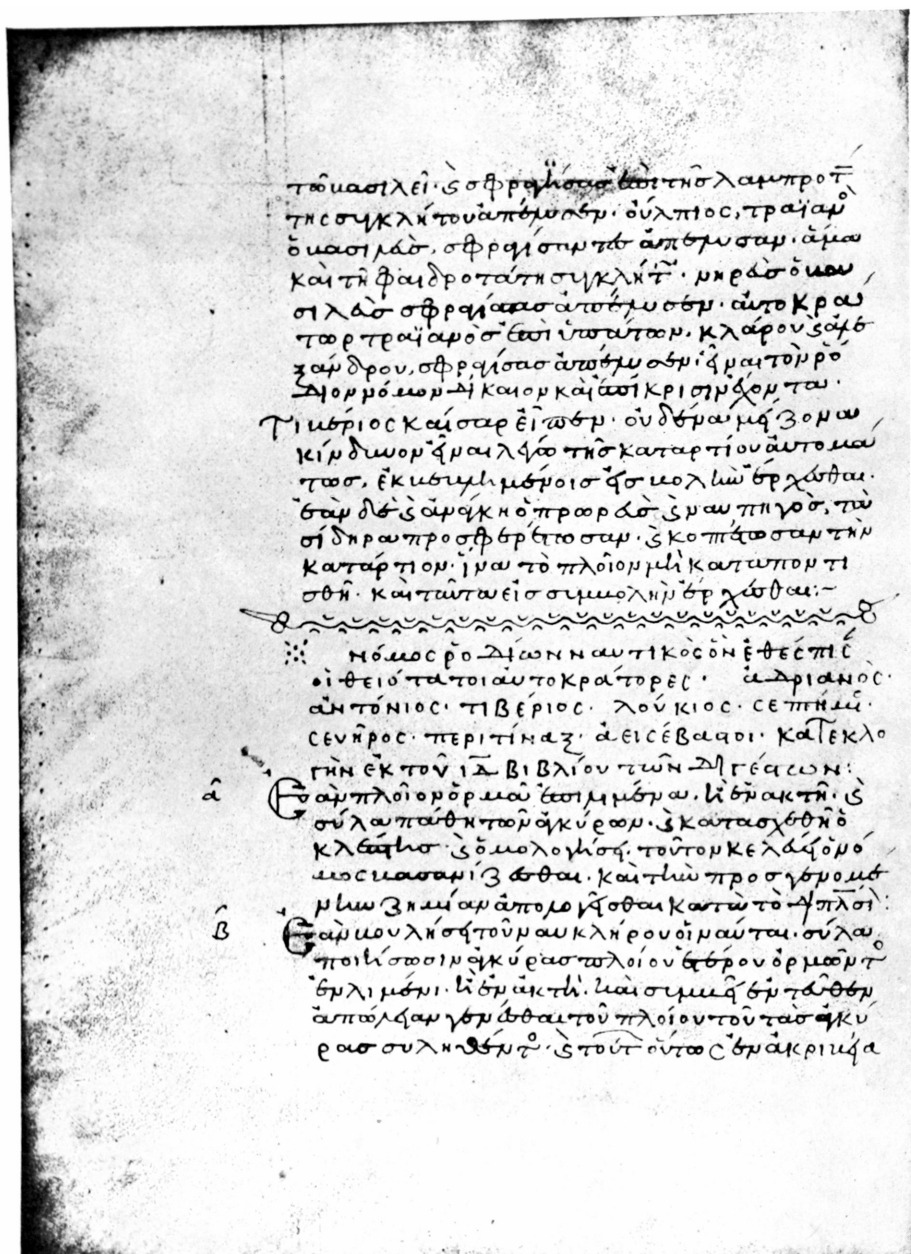 τῶ βασιλεῖ· ϗ σφραγίσας ἐπὶ τῆς λαμπροτ
της συγκλήτου ἀπέλυσεν· οὔλπιος, τραϊαν
ὁ βασιλεὺς, σφραγίσαντες ἀπέλυσαν· ἅμα
καὶ τῆ φαιδροτάτη συγκλήτ· νηρεὺς ὁ βα
σιλεὺς σφραγίσας ἀπέλυσεν· ἀυτοκρά
τωρ τραϊανὸς ἐπὶ ὑπάτων, κλάρου ϗ ἀλε
ξάνδρου, σφραγίσας ἀπέλυσεν· εἶναι τὸν ῥό
διον νόμον δίκαιον καὶ ἀπίκρισιν ἔχοντα·
Τιβέριος καίσαρ εἶπεν· οὐδένα μείζονα
κίνδυνον εἶναι λέγω τῆς καταρτίου ἀυτομά
τως, ἐκβεβλημένοις εἰς βολὴν ἔρχεσθαι·
ἐὰν δὲ ϗ ἀνάγκη ὁ πρωρεὺς ϗ ναυπηγὸς, τὰ
σίδηρα προσφερέτωσαν· ϗ κοπτέτωσαν τὴν
κατάρτιον· ἵνα τὸ πλοῖον μὴ καταποντι
σθῆ· καὶ ταῦτα εἰς συμβολὴν ἔρχεσθαι:-
νόμος ῥοδίων ναυτικὸς ὃν ἐθέσπισ
οἱ θειότατοι ἀυτοκράτορες· ἀδριανὸς·
ἀντόνιος· τιβέριος· λούκιος· σεπήμι·
σευῆρος· περιτίναξ· ἀεισέβαστοι· κατ εκλο
γὴν ἐκ τοῦ ιδ βιβλίου τῶν διγέστων:
α Ἐὰν πλοῖον ὁρμᾶ ἐπὶ λιμένα. ἢ ἐν ἀκτῆ· ϗ
σύλα πάθη τῶν ἀγκύρων· ϗ κατασχεθῆ ὁ
κλέπτης· ϗ ὁμολογήσει· τοῦτον κελεύει ὁ νό
μος βασανίζεσθαι· καὶ τὴν προσγενομέ
νην ζημίαν ἀπολογεῖσθαι κατὰ τὸ διπλοῦ:
β Ἐὰν βουλήσει τοῦ ναυκλήρου οἱ ναύται· σύλα
ποιήσωσιν ἀγκύρας πλοίου ἑτέρου ὁρμῶντ
ἐν λιμένι· ἢ ἐν ἀκτῆ· καὶ συμβῆ ἐντεῦθεν
ἀπώλειαν γενέσθαι τοῦ πλοίου τοῦ τὰς ἀγκύ
ρας συληθέντ· ϗ τούτ οὕτως ἐν ἀκριβεία